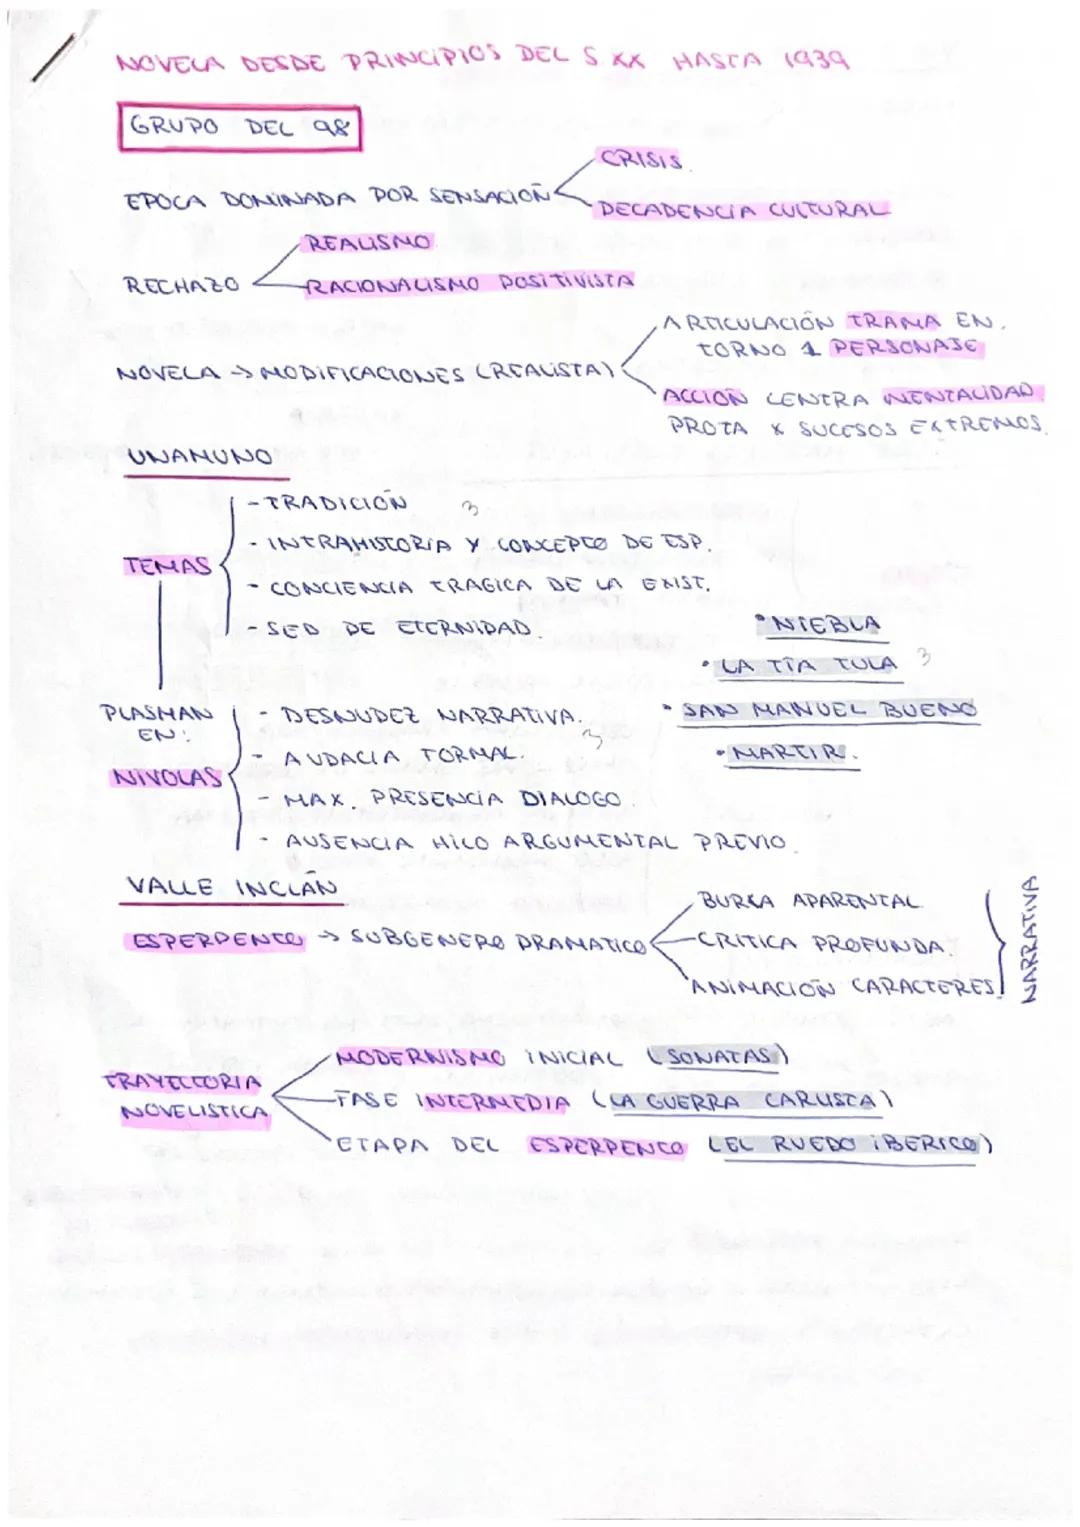 NOVELA DESDE PRINCIPIOS DEL S. XX HASTA 1939
GRUPO DEL 98
CRISIS.
EPOCA DOMINADA POR SENSACIÓN
DECADENCIA CULTURAL
REALISMO
RECHAZO
RACIONALISMO POSITIVISTA
ARTICULACIÓN TRAMA EN.
TORNO 1 PERSONAJE
NOVELA → MODIFICACIONES (REALISTA)
ACCIÓN CENTRA MENTALIDAD
PROTA X SUCESOS EXTREMOS.
UNAMUNO
- TRADICIÓN 3
- INTRAHISTORIA Y CONCEPTO DE ESP.
TEMAS
- CONCIENCIA TRAGICA DE LA EXIST.
- SED DE ETERNIDAD.
• NIEBLA
• LA TÍA TULA 3
PLASMAN EN:
- DESNUDEZ NARRATIVA.
• SAN MANUEL BUENO
- AUDACIA FORMAL. 3
• MARTIR.
NIVOLAS
- MAX. PRESENCIA DIALOGO.
- AUSENCIA HILO ARGUMENTAL PREVIO.
VALLE INCLÁN
BURLA APARENTAL
ESPERPENTO → SUBGENERO DRAMATICO
CRITICA PROFUNDA.
ANIMACIÓN CARACTERES.
NARRATIVA
MODERNISMO INICIAL (SONATAS)
TRAYECTORIA
NOVELISTICA
FASE INTERMEDIA (LA GUERRA CARLISTA)
ETAPA DEL ESPERPENTO (EL RUEDO IBERICO)